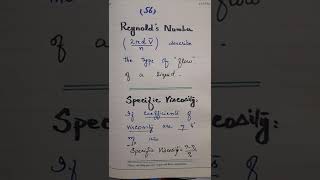 (56)
Reynold's Number
(2πd V̄ / η) describe
the Type of "flow"
of a Liquid.
Specific Viscosity:
If coefficients of
Viscosity are η &
Specific Viscosity =
If of